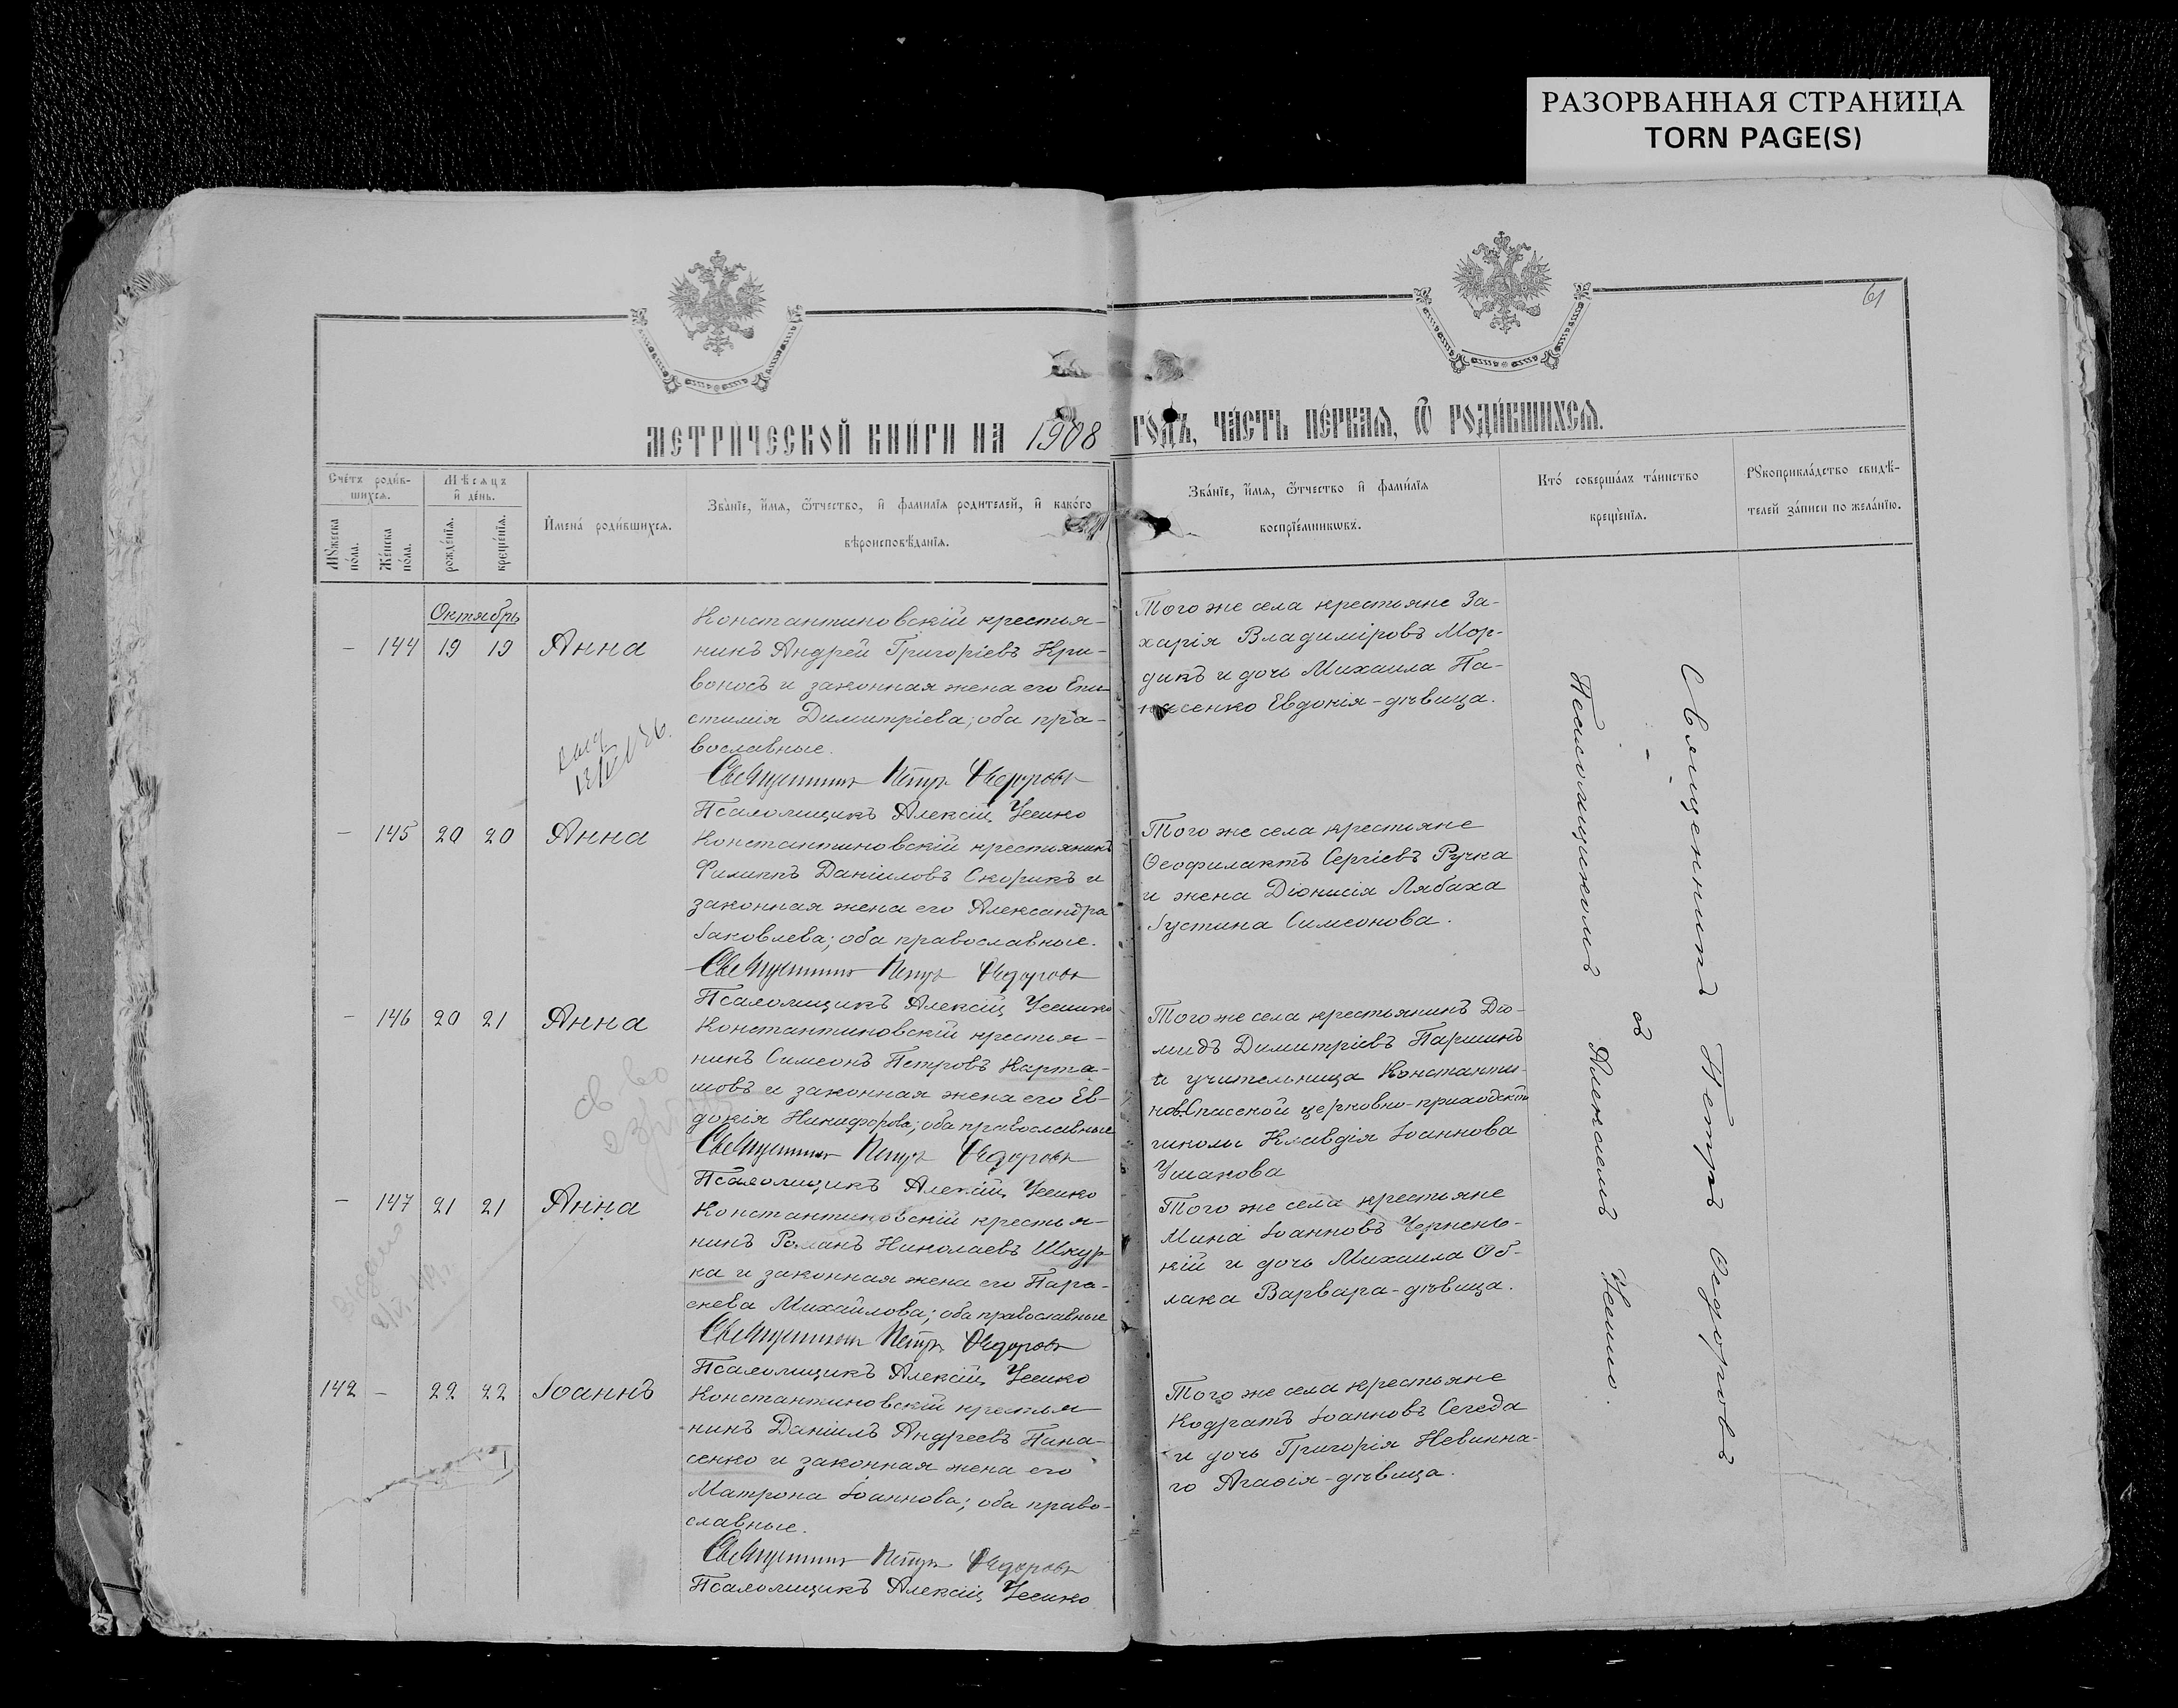 РАЗОРВАННАЯ СТРАНИЦА
TORN PAGE(S)
61
МЕТРИЧЕСКОЙ КНИГИ НА 1908 ГОДЪ, ЧАСТЬ ПЕРВАЯ, Ѡ РОДИВШИХСЯ.
Счетъ родив-
шихся.
Мѹжеска
пола.
Женска
пола.
Мѣсяцъ
и день.
рожденія.
крещенія.
Имена родившихся.
Званіе, имя, ѿчество, и фамилія родителей, и какого
вѣроисповѣданія.
Званіе, имя, ѿчество и фамилія
воспріемниковъ.
Кто совершалъ таинство
крещенія.
Рѹкоприкладство свидѣ-
телей записи по желанію.
Октябрь
- 144 19 19 Анна
Константиновскій крестья-
нинъ Андрей Григоріевъ Кри-
воносъ и законная жена его Епи-
стимія Димитріева; оба пра-
вославные.
Священникъ Петръ Ѳедоровъ
Псаломщикъ Алексій
Того же села крестьяне За-
харія Владиміровъ Мор-
дикъ и дочь Михаила Па-
насенко Евдокія-дѣвица.
- 145 20 20 Анна
Константиновскій крестьянинъ
Филиппъ Даніиловъ Скорикъ и
законная жена его Александра
Іаковлева; оба православные.
Священникъ Петръ Ѳедоровъ
Псаломщикъ Алексій
Того же села крестьяне
Ѳеофилактъ Сергіевъ Ручка
и жена Діонисія Лябаха
Іустина Симеонова.
- 146 20 21 Анна
Константиновскій крестья-
нинъ Симеонъ Петровъ Карта-
шовъ и законная жена его Ев-
докія Никифорова; оба православные
Священникъ Петръ Ѳедоровъ
Псаломщикъ Алексій
Того же села крестьянинъ Діо-
мидъ Димитріевъ Паршинъ
и учительница Константи-
нов.Спасской церковно-приходской
школы Клавдія Іоаннова
Ушакова
- 147 21 21 Анна
Константиновскій крестья-
нинъ Романъ Николаевъ Шкур-
ка и законная жена его Пара-
скева Михайлова; оба православные
Священникъ Петръ Ѳедоровъ
Псаломщикъ Алексій
Того же села крестьяне
Мина Іоанновъ Чернень-
кій и дочь Михаила Об-
лака Варвара-дѣвица.
142 - 22 22 Іоаннъ
Константиновскій крестья-
нинъ Даніилъ Андреевъ Пана-
сенко и законная жена его
Матрона Іоаннова; оба право-
славные.
Священникъ Петръ Ѳедоровъ
Псаломщикъ Алексій
Того же села крестьяне
Кодратъ Іоанновъ Сегеда
и дочь Григорія Невинна-
го Агаѳія-дѣвица.
Священникъ Петръ Ѳедоровъ
съ
Псаломщикомъ Алексіемъ